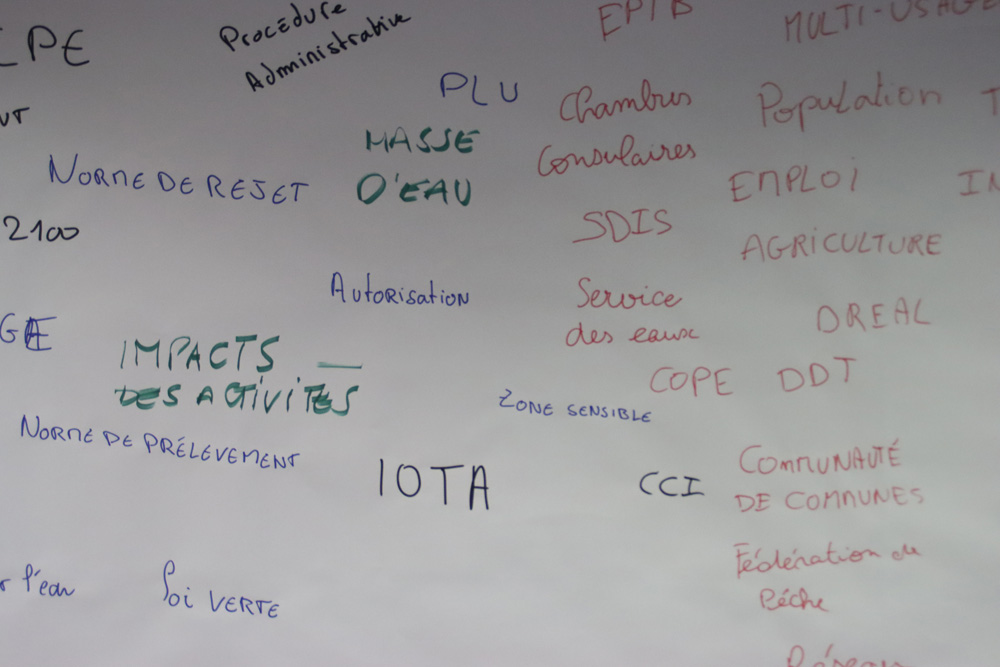 Procédure
Administrative
EPTB
MULTI-USAGE
PLU
Chambres
Consulaires
Population
MASSE
D'EAU
NORME DE REJET
EMPLOI
2100
SDIS
AGRICULTURE
Autorisation
Service
des eaux
DREAL
IMPACTS
DES ACTIVITES
COPE
DDT
ZONE SENSIBLE
NORME DE PRÉLEVEMENT
IOTA
CCI
COMMUNAUTÉ
DE COMMUNES
Fédération de
Pêche
l'eau
Loi VERTE